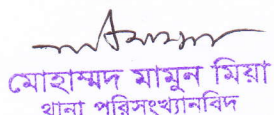 মোহাম্মদ মামুন মিয়া
থানা পরিসংখ্যানবিদ